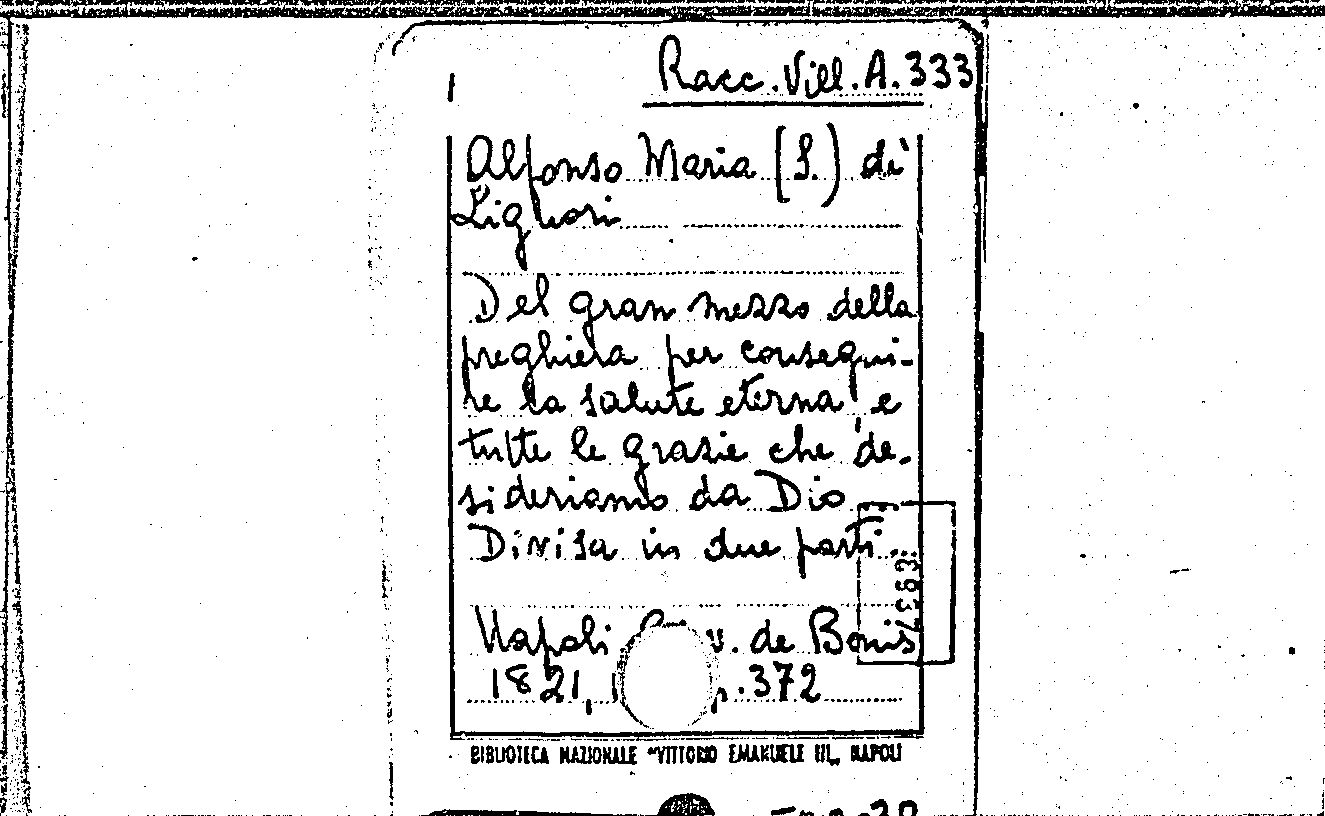 1
Racc. Vill. A. 333
Alfonso Maria (S.) di
Liguori
Del gran mezzo della
preghiera per consegui-
re la salute eterna e
tutte le grazie che de-
sideriamo da Dio
Divisa in due parti.
Napoli v. de Bonis
1821, p. 372
BIBLIOTECA NAZIONALE "VITTORIO EMANUELE III„ NAPOLI